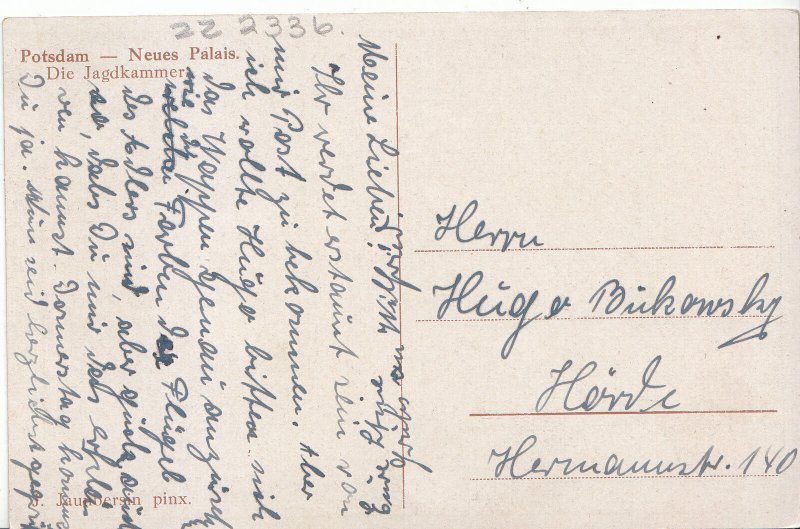 22 2336.
Potsdam — Neues Palais.
Die Jagdkammer.
Meine Lieben!
Ihr werdet erstaunt sein von
mir Post zu bekommen. Aber
ich wollte Hugo bitten sich
das Wappen genau anzusehn
wie die
Farben der Flügel
des Adlers sind, aber
so, dass Du mir das
kannst. Donnerstag kommst
Du ja. Nun seid herzlichst
pinx.
Herrn
Hugo Bukowsky
Hörde
Hermannstr. 140